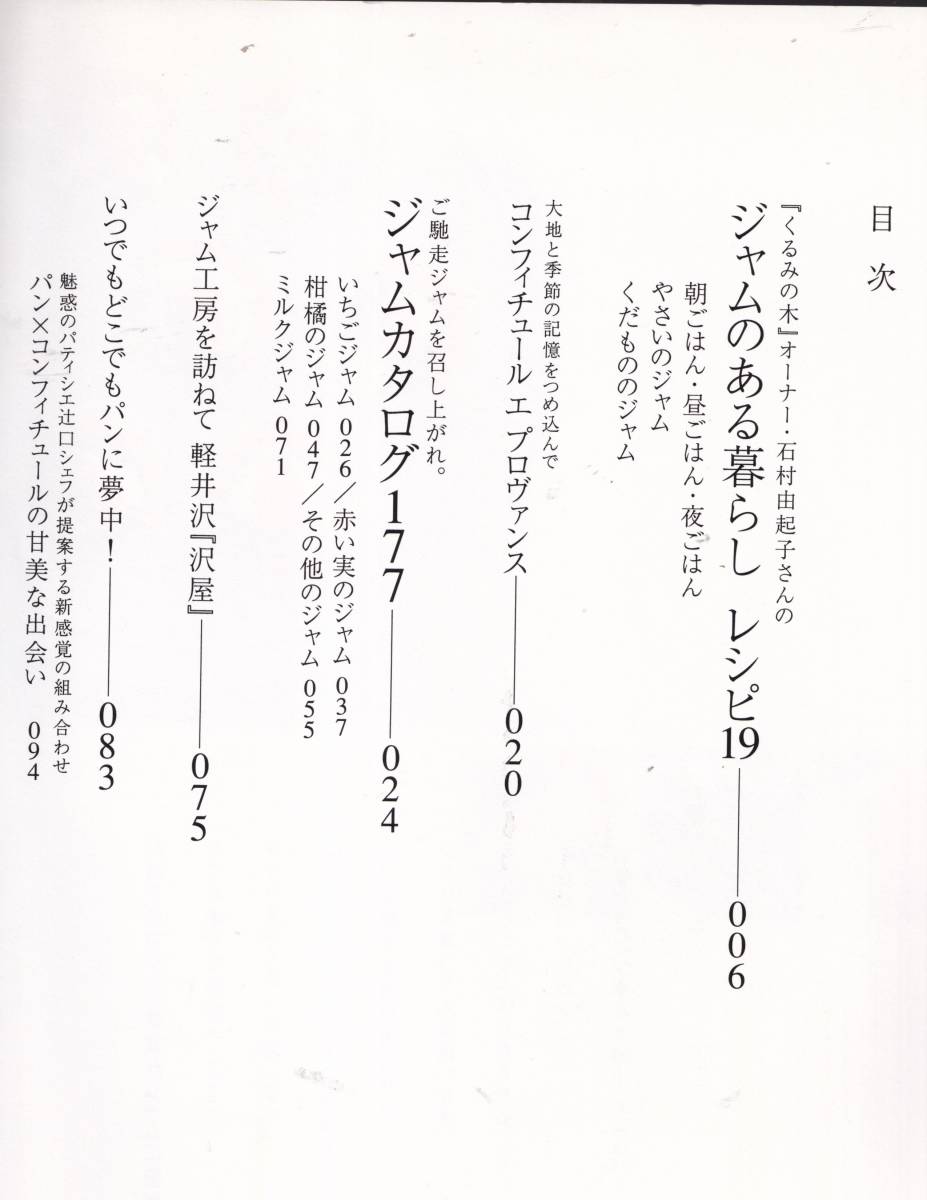 目次
『くるみの木』オーナー・石村由起子さんの
ジャムのある暮らし レシピ19――006
朝ごはん・昼ごはん・夜ごはん
やさいのジャム
くだもののジャム
大地と季節の記憶をつめ込んで
コンフィチュール エ プロヴァンス――020
ご馳走ジャムを召し上がれ。
ジャムカタログ177――024
いちごジャム 026／赤い実のジャム 037
柑橘のジャム 047／その他のジャム 055
ミルクジャム 071
ジャム工房を訪ねて 軽井沢『沢屋』――075
いつでもどこでもパンに夢中！――083
魅惑のパティシエ辻口シェフが提案する新感覚の組み合わせ
パン×コンフィチュールの甘美な出会い 094